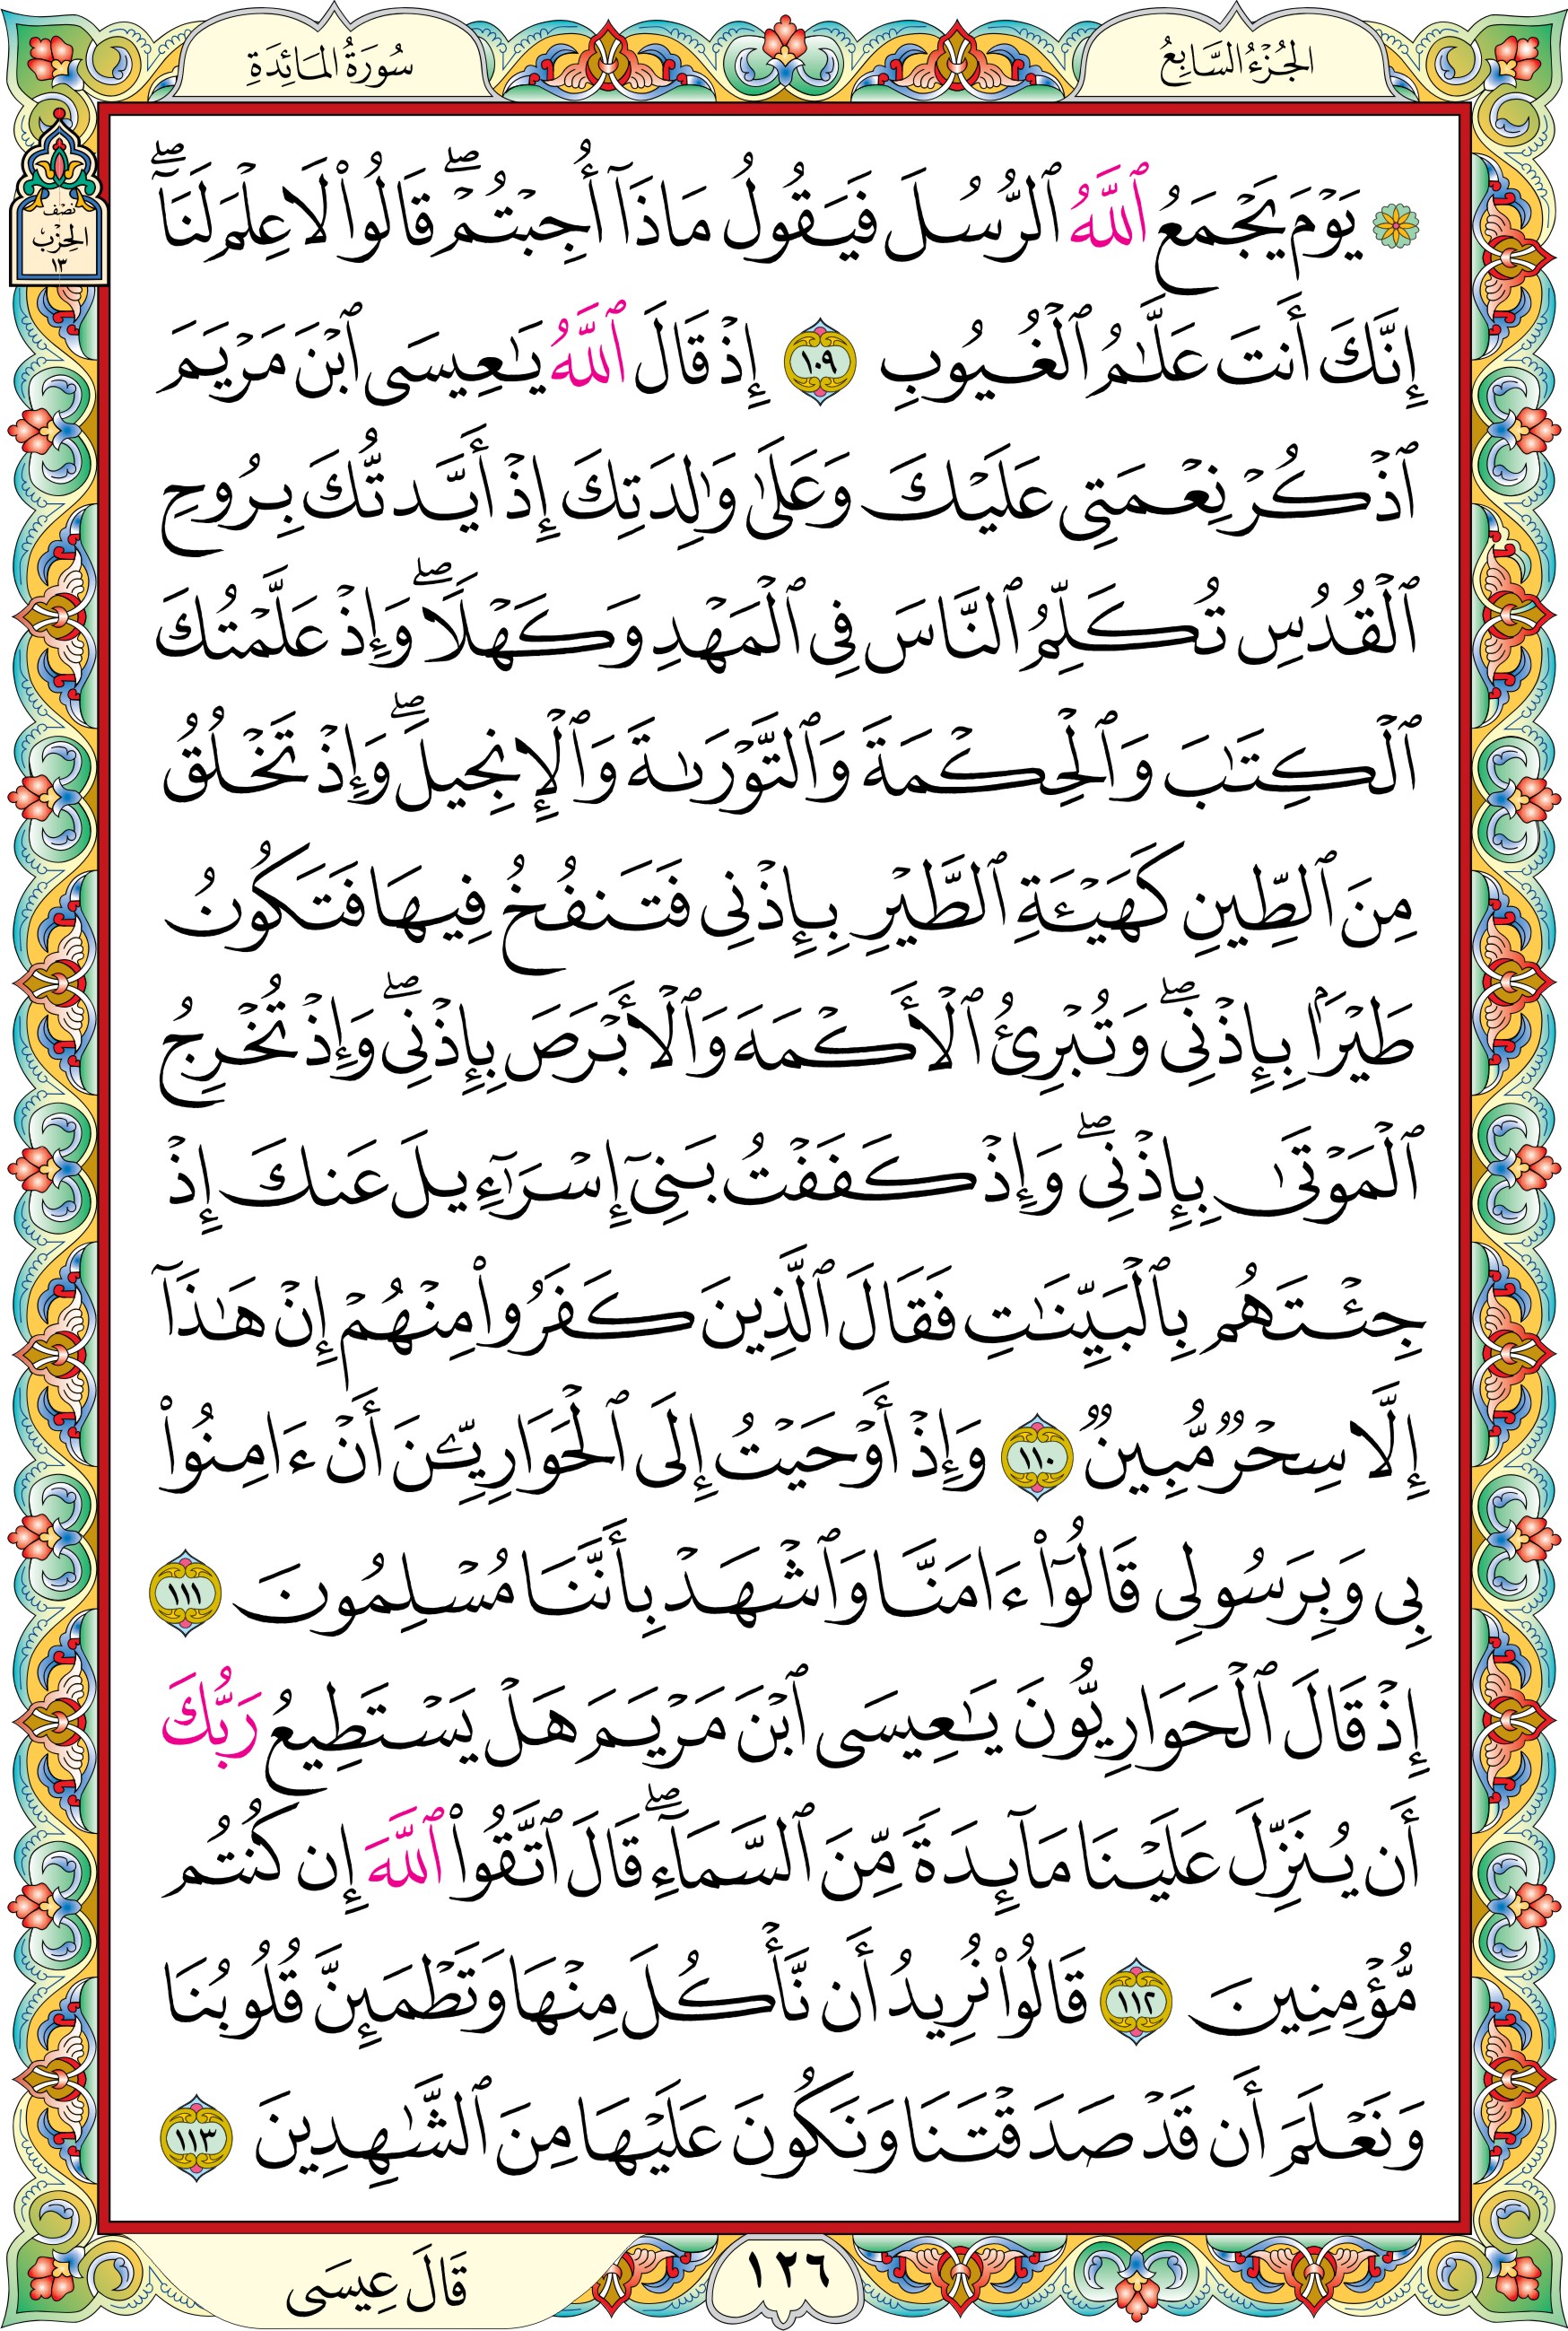 الجُزْءُ السَّابِعُ
سُورَةُ المَائِدَةِ
نصف
الحِزْب
١٣
۞ يَوْمَ يَجْمَعُ ٱللَّهُ ٱلرُّسُلَ فَيَقُولُ مَاذَآ أُجِبْتُمْۖ قَالُوا۟ لَا عِلْمَ لَنَآۖ
إِنَّكَ أَنتَ عَلَّٰمُ ٱلْغُيُوبِ ١٠٩ إِذْ قَالَ ٱللَّهُ يَٰعِيسَى ٱبْنَ مَرْيَمَ
ٱذْكُرْ نِعْمَتِى عَلَيْكَ وَعَلَىٰ وَٰلِدَتِكَ إِذْ أَيَّدتُّكَ بِرُوحِ
ٱلْقُدُسِ تُكَلِّمُ ٱلنَّاسَ فِى ٱلْمَهْدِ وَكَهْلًاۖ وَإِذْ عَلَّمْتُكَ
ٱلْكِتَٰبَ وَٱلْحِكْمَةَ وَٱلتَّوْرَىٰةَ وَٱلْإِنجِيلَۖ وَإِذْ تَخْلُقُ
مِنَ ٱلطِّينِ كَهَيْـَٔةِ ٱلطَّيْرِ بِإِذْنِى فَتَنفُخُ فِيهَا فَتَكُونُ
طَيْرًۢا بِإِذْنِىۖ وَتُبْرِئُ ٱلْأَكْمَهَ وَٱلْأَبْرَصَ بِإِذْنِىۖ وَإِذْ تُخْرِجُ
ٱلْمَوْتَىٰ بِإِذْنِىۖ وَإِذْ كَفَفْتُ بَنِىٓ إِسْرَٰٓءِيلَ عَنكَ إِذْ
جِئْتَهُم بِٱلْبَيِّنَٰتِ فَقَالَ ٱلَّذِينَ كَفَرُوا۟ مِنْهُمْ إِنْ هَٰذَآ
إِلَّا سِحْرٌ مُّبِينٌ ١١٠ وَإِذْ أَوْحَيْتُ إِلَى ٱلْحَوَارِيِّـۧنَ أَنْ ءَامِنُوا۟
بِى وَبِرَسُولِى قَالُوٓا۟ ءَامَنَّا وَٱشْهَدْ بِأَنَّنَا مُسْلِمُونَ ١١١
إِذْ قَالَ ٱلْحَوَارِيُّونَ يَٰعِيسَى ٱبْنَ مَرْيَمَ هَلْ يَسْتَطِيعُ رَبُّكَ
أَن يُنَزِّلَ عَلَيْنَا مَآئِدَةً مِّنَ ٱلسَّمَآءِۖ قَالَ ٱتَّقُوا۟ ٱللَّهَ إِن كُنتُم
مُّؤْمِنِينَ ١١٢ قَالُوا۟ نُرِيدُ أَن نَّأْكُلَ مِنْهَا وَتَطْمَئِنَّ قُلُوبُنَا
وَنَعْلَمَ أَن قَدْ صَدَقْتَنَا وَنَكُونَ عَلَيْهَا مِنَ ٱلشَّٰهِدِينَ ١١٣
١٢٦
قَالَ عِيسَى